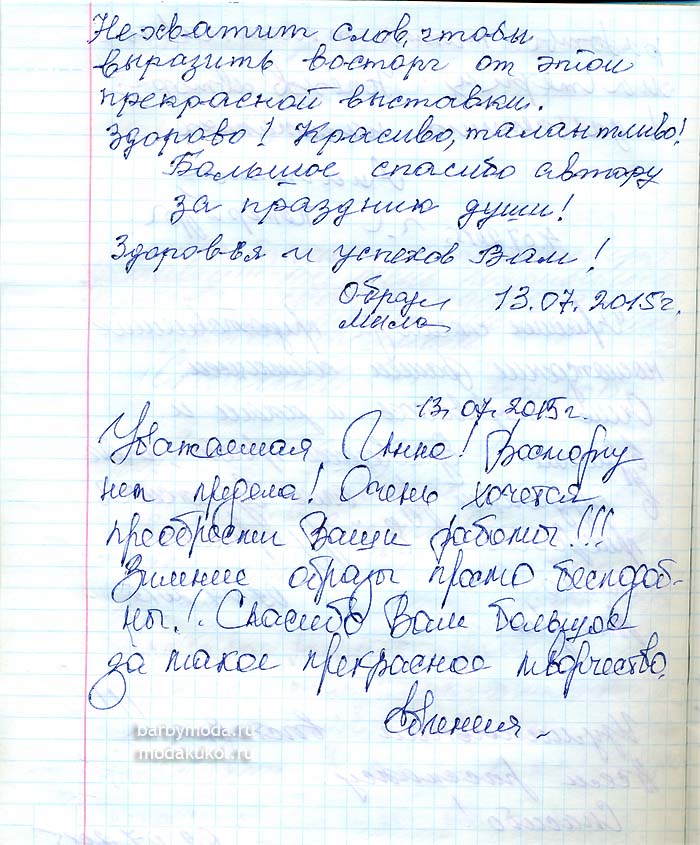 Не хватит слов, чтобы
выразить восторг от этой
прекрасной выставки.
Здорово! Красиво, талантливо!
Большое спасибо автору
за праздник души!
Здоровья и успехов Вам!
13.07.2015г.
Мила
13.07.2015г.
Уважаемая Инна! Восторгу
нет предела! Очень хочется
преобрести Ваши работы!!!
Зимние образы просто бесподоб-
ны! Спасибо Вам большое
за такое прекрасное творчество.
Евгения
barbymoda.ru
modakukol.ru